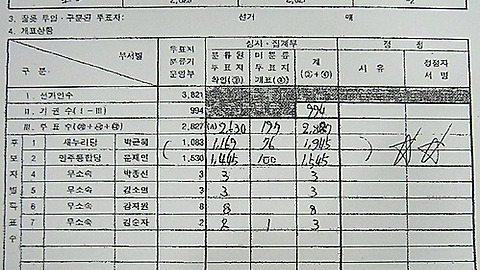 3. 잘못 투입·구분된 투표지: 선거 매
4. 개표상황
부서별
구 분
투표지 분류기 운영부
심사·집계부
분류된 투표지
미분류 투표지
계
정 정
사 유
정정자 서명
Ⅰ. 선거인수 3,821
Ⅱ. 기 권 수 (Ⅰ-Ⅲ) 994 994
Ⅲ. 투 표 수 2,827 (A) 2,630 177
후보자별득표수
1 새누리당 박근혜 1,083 1,169 76
2 민주통합당 문재인 1,530 1,445 100 1,545
4 무소속 박종선 3 3 3
5 무소속 김소연 3 3 3
6 무소속 강지원 8 8 8
7 무소속 김순자 2 2 1 3